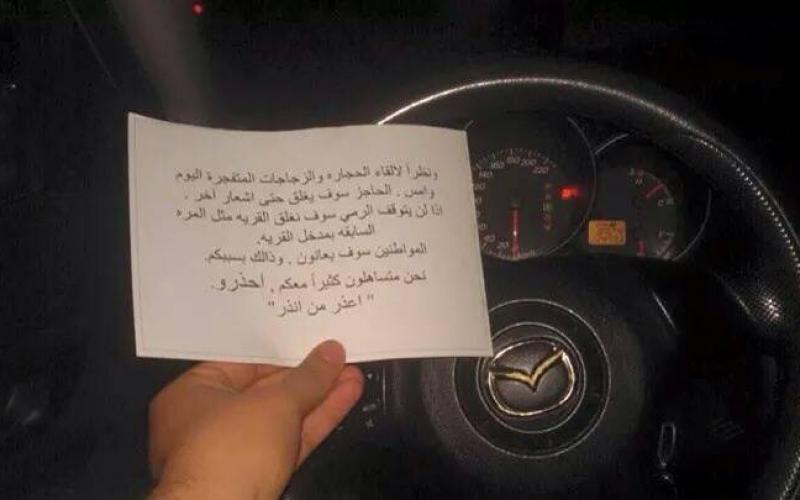 ونظراً لالقاء الحجاره والزجاجات المتفجرة اليوم
وامس , الحاجز سوف يغلق حتى اشعار آخر .
اذا لن يتوقف الرمي سوف نغلق القريه مثل المره
السابقه بمدخل القريه.
المواطنين سوف يعانون , وذالك بسببكم.
نحن متساهلون كثيراً معكم , أحذرو.
" اعذر من انذر "